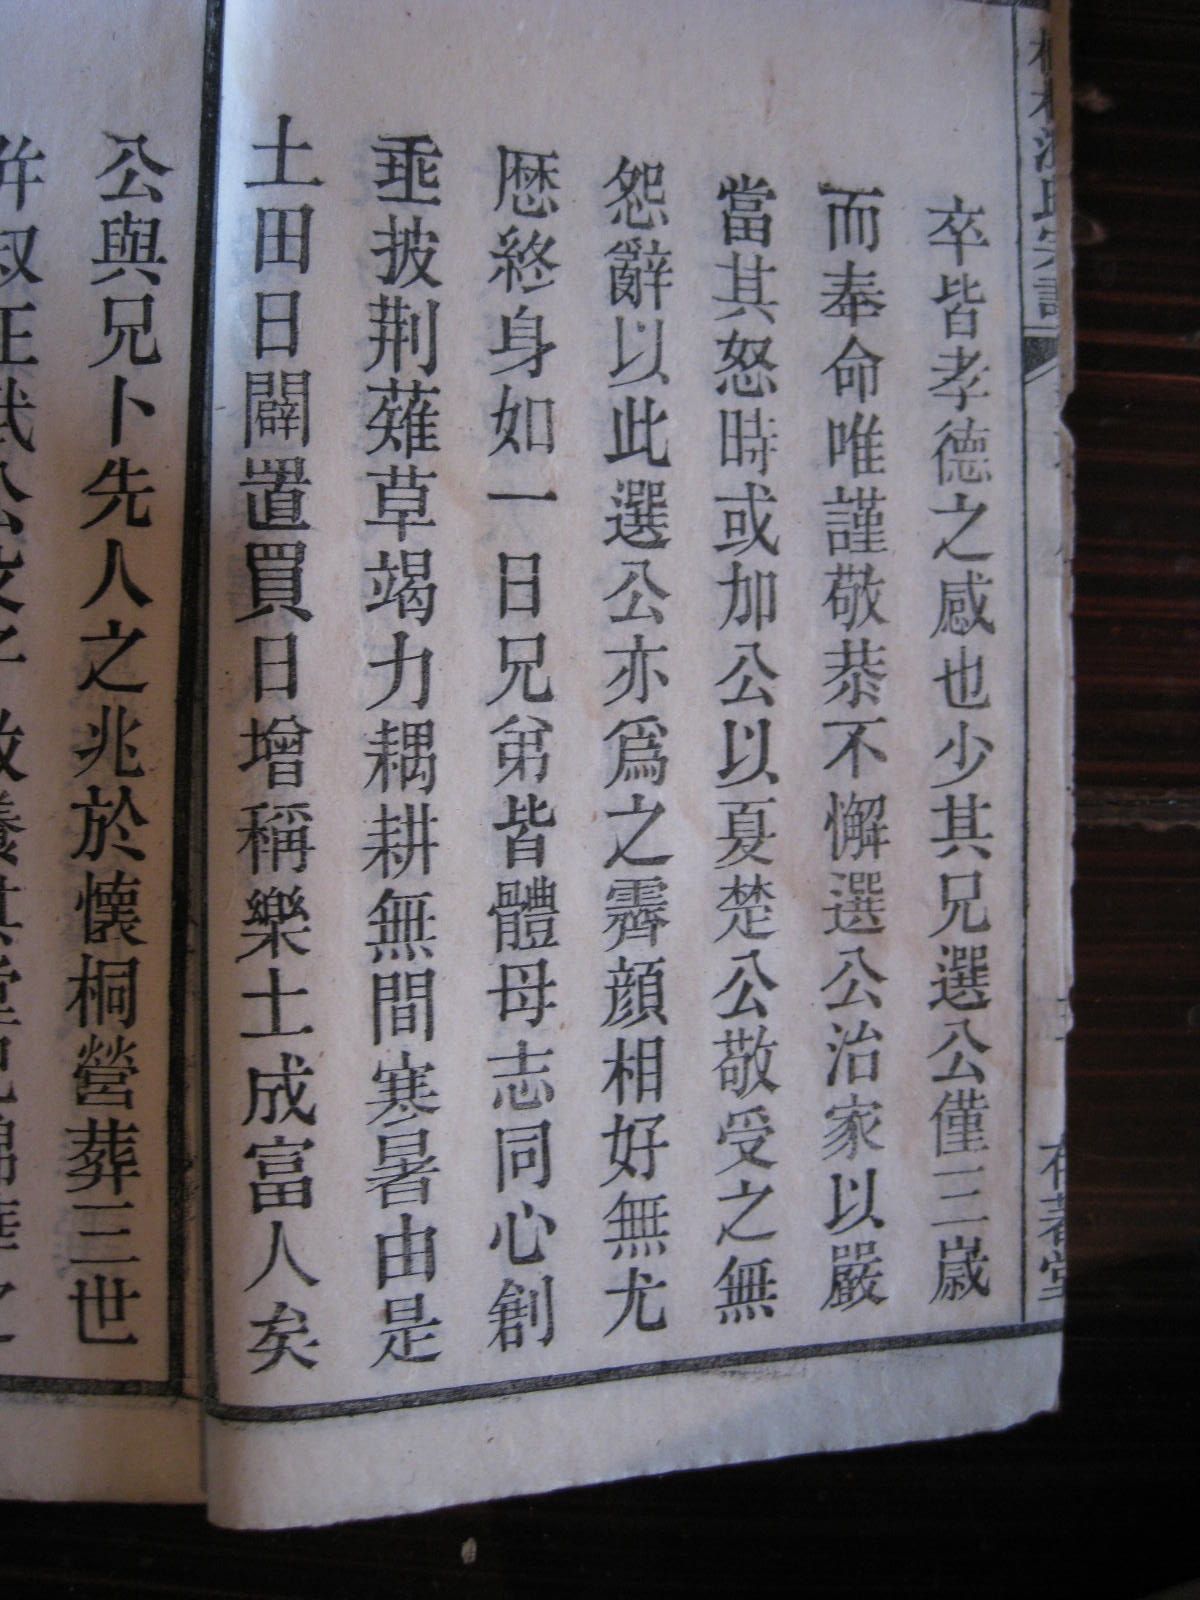 氏宗譜
卒皆孝德之感也少其兄選公僅三歲
而奉命唯謹敬恭不懈選公治家以嚴
當其怒時或加公以夏楚公敬受之無
怨辭以此選公亦爲之霽顔相好無尤
歷終身如一日兄弟皆體母志同心創
埀披荆薙草竭力耦耕無間寒暑由是
土田日闢置買日增稱樂土成富人矣
公與兄卜先人之兆於懐桐營葬三世